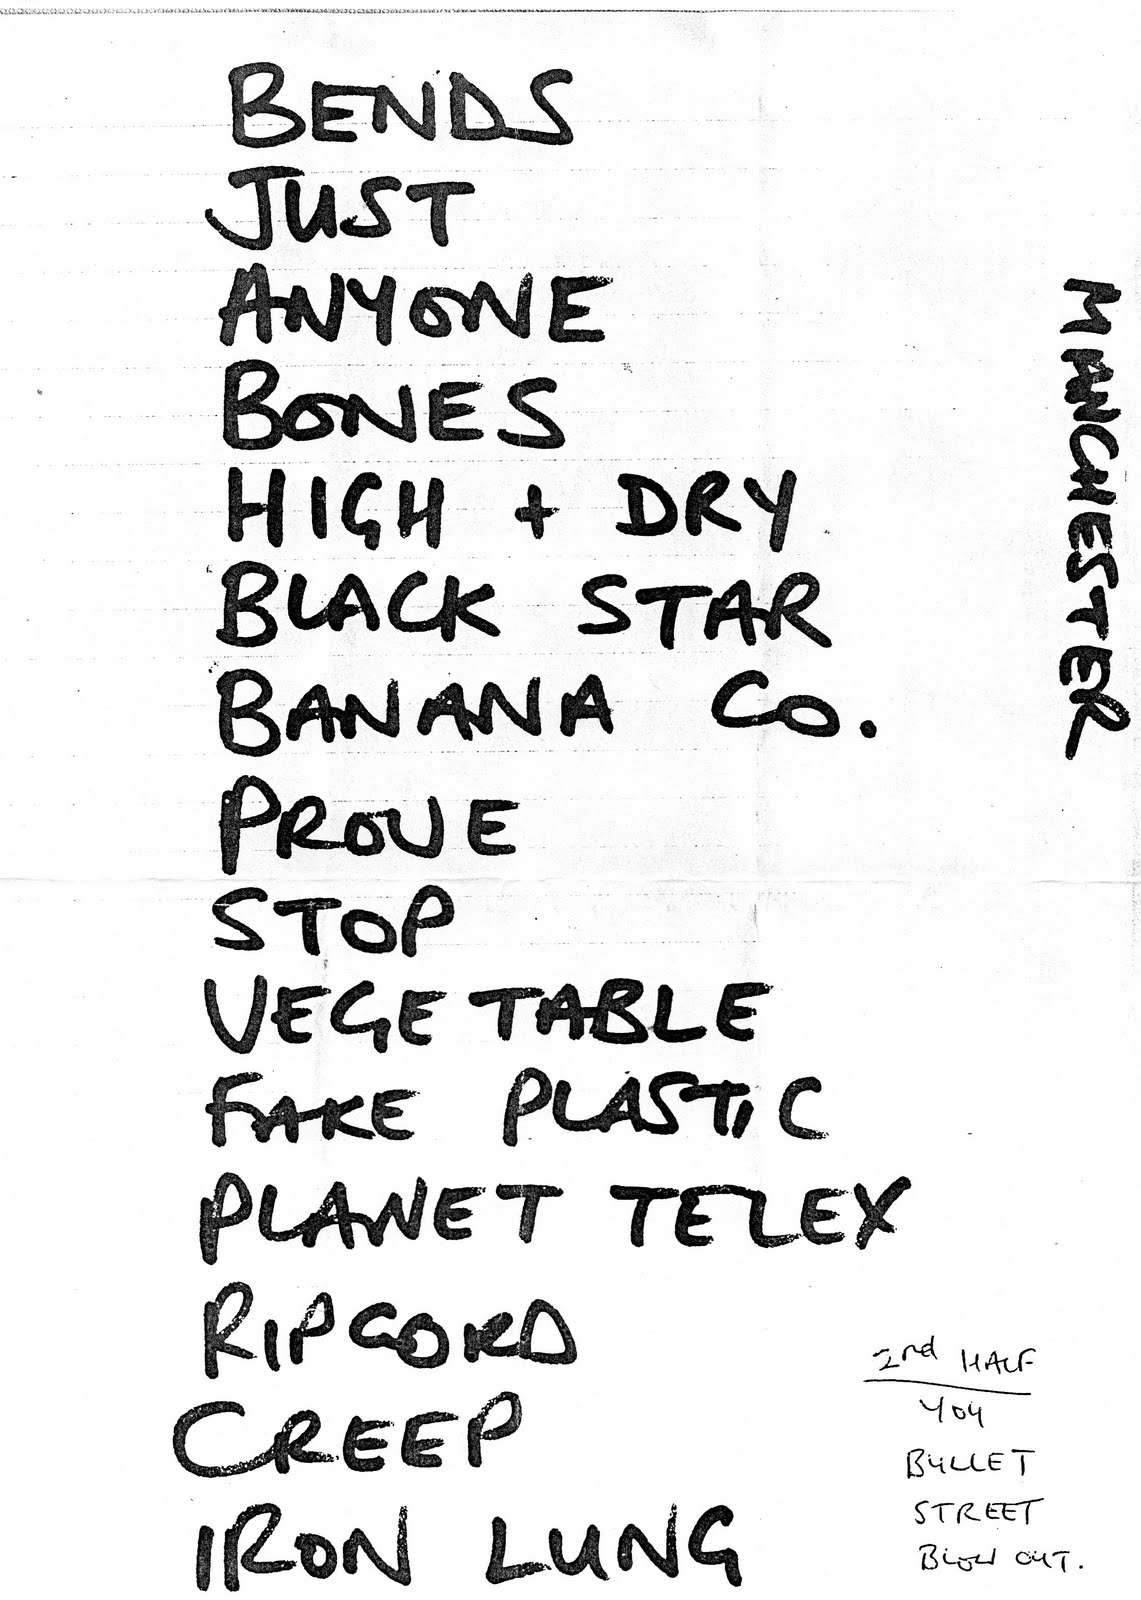 BENDS
JUST
ANYONE
BONES
HIGH + DRY
BLACK STAR
BANANA CO.
PROVE
STOP
VEGETABLE
FAKE PLASTIC
PLANET TELEX
RIPCORD
CREEP
IRON LUNG
MANCHESTER
2nd HALF
YOU
BULLET
STREET
BLOW OUT.